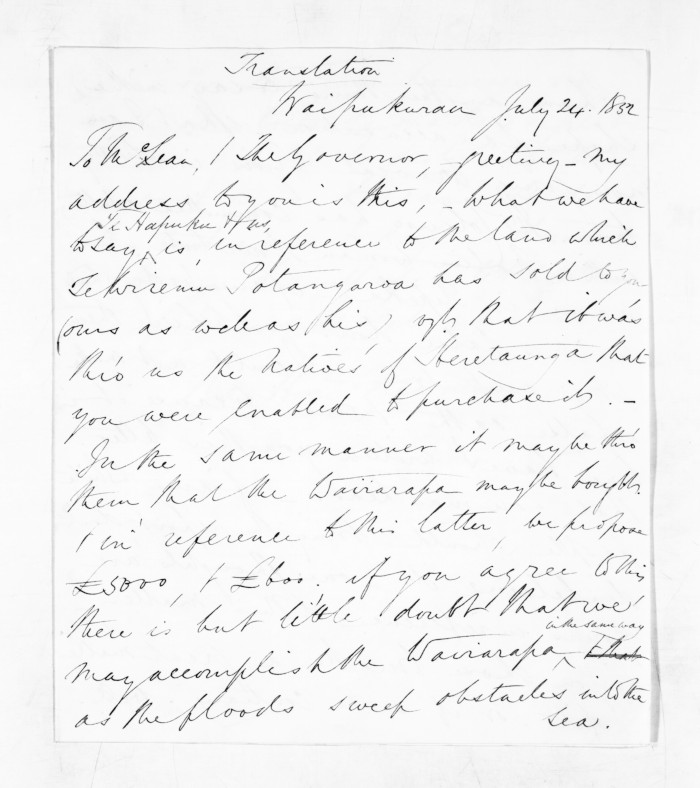 Translation
Waipukurau July 24. 1852
To McLean, & The Governor, greeting - My
address to you is this, - What we have
Te Hapuku & us,
to say is, in reference to the land which
Te Wiremu Potangaroa has sold to you
(ours as well as his) that it was
thro us the Natives of Heretaunga that
you were enabled to purchase it. -
In the same manner it may be thro
them that the Wairarapa may be bought,
& in reference to this latter, we propose
£5000, & £600; if you agree to this
there is but little doubt that we
in the same way
may accomplish the Wairarapa, & that
as the floods sweep obstacles into the
sea.